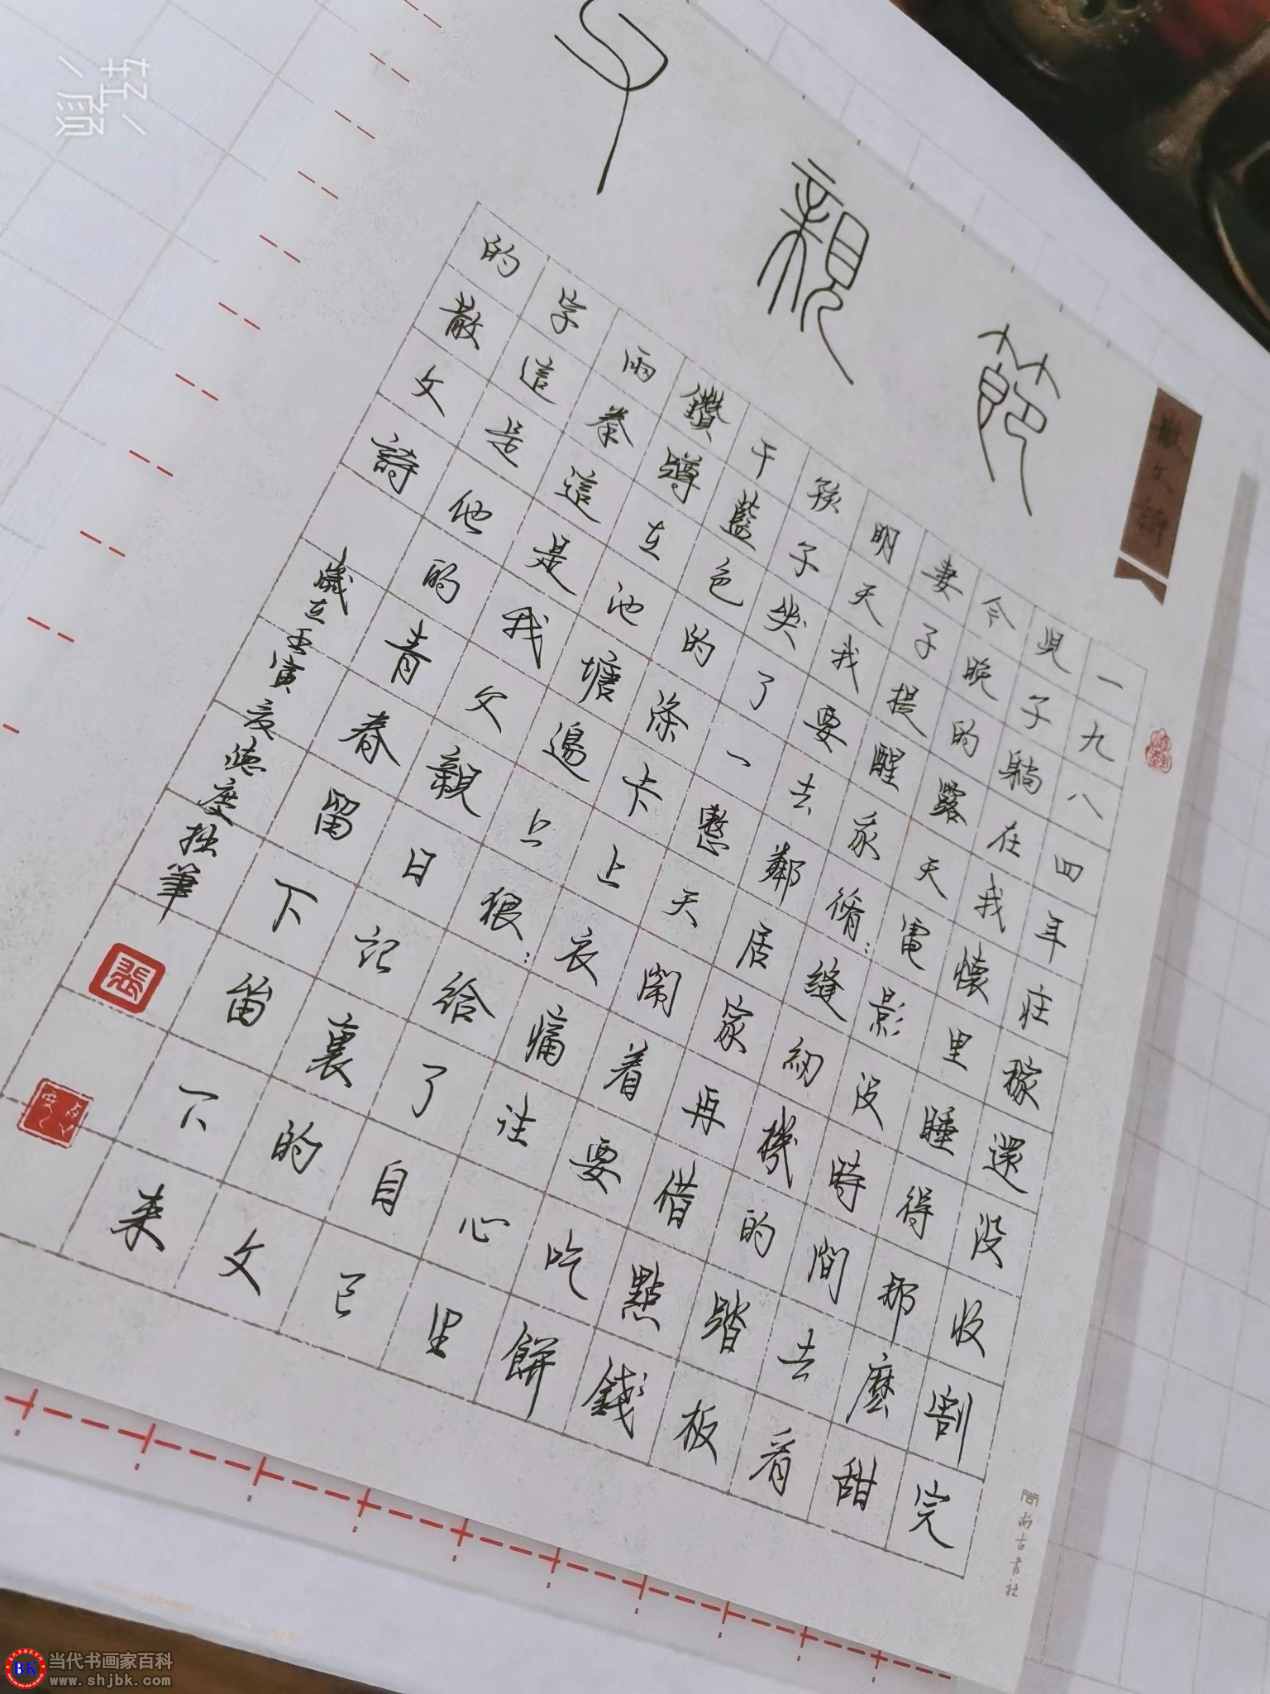 父親節
散文詩
一九八四年庄稼還没收割完
兒子躺在我懷里睡得那麼甜
今晚的露天電影没時間去看
妻子提醒我脩:縫紉機的踏板
明天我要去鄰居家再借點錢
孩子哭了一整天鬧着要吃餅
干藍色的滌卡上衣痛往心里
鑽蹲在池塘邊上狠:給了自己
兩拳這是我父親日記裏的文
字這是他的青春留下留下来
的散文詩
歲在壬寅夏德度拙筆
張
尚古書社
轻颜
BK
当代书画家百科
www.shjbk.com